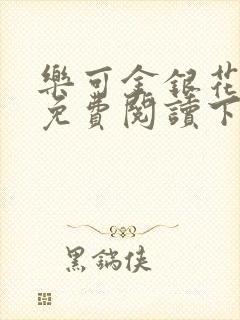 樂可金銀花
免費閱讀下
黑鍋俠